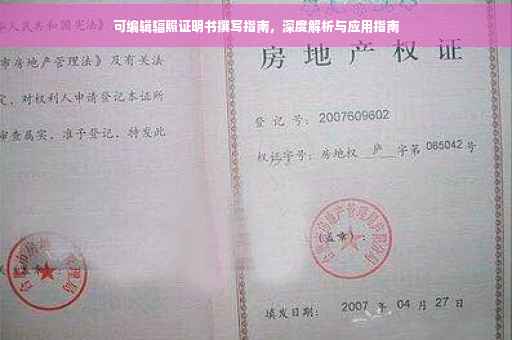 可编辑辐照证明书撰写指南，深度解析与应用指南
人民共和国宪法》
市房地产管理法》及有关法
定，对权利人申请登记本证所
审查属实，准予登记，特发此
房地产权证
登记号：2007609602
权证字号：房地权庐字第085042号
(盖章)：
填发日期：2007年04月27日